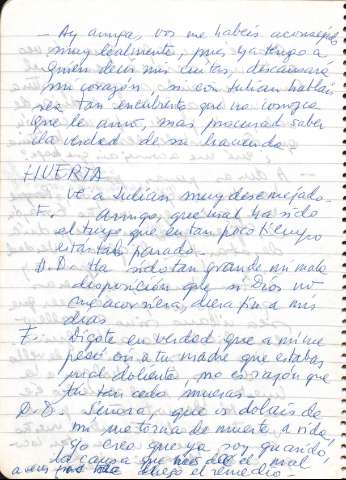 – Ay amiga, vos me habéis aconsejado
muy lealmente, pues ya tengo a
quien decir mis cuitas, descansará
mi corazón, si con Julian habláis
sea tan encubierto que no conozca
que le amo, mas procurad saber
la verdad de su hacienda.
HUERTA
Ve a Julian muy desemejado.
F. – Amigo, qué mal ha sido
el tuyo que en tan poco tiempo
estás tal parado. –
D.D. Ha sido tan grande mi mala
disposición que si Dios no
me acorriera, diera fin a mis
días
F. – Dígote en verdad que a mí me
pesó oír a tu madre que estabas
mal doliente, no es razón que
tú tan cedo mueras.
D.D. Señora, que os doláis de
mí me torna de muerte a vida,
yo creo que ya soy guarido,
la causa que el mal
luego el remedio –